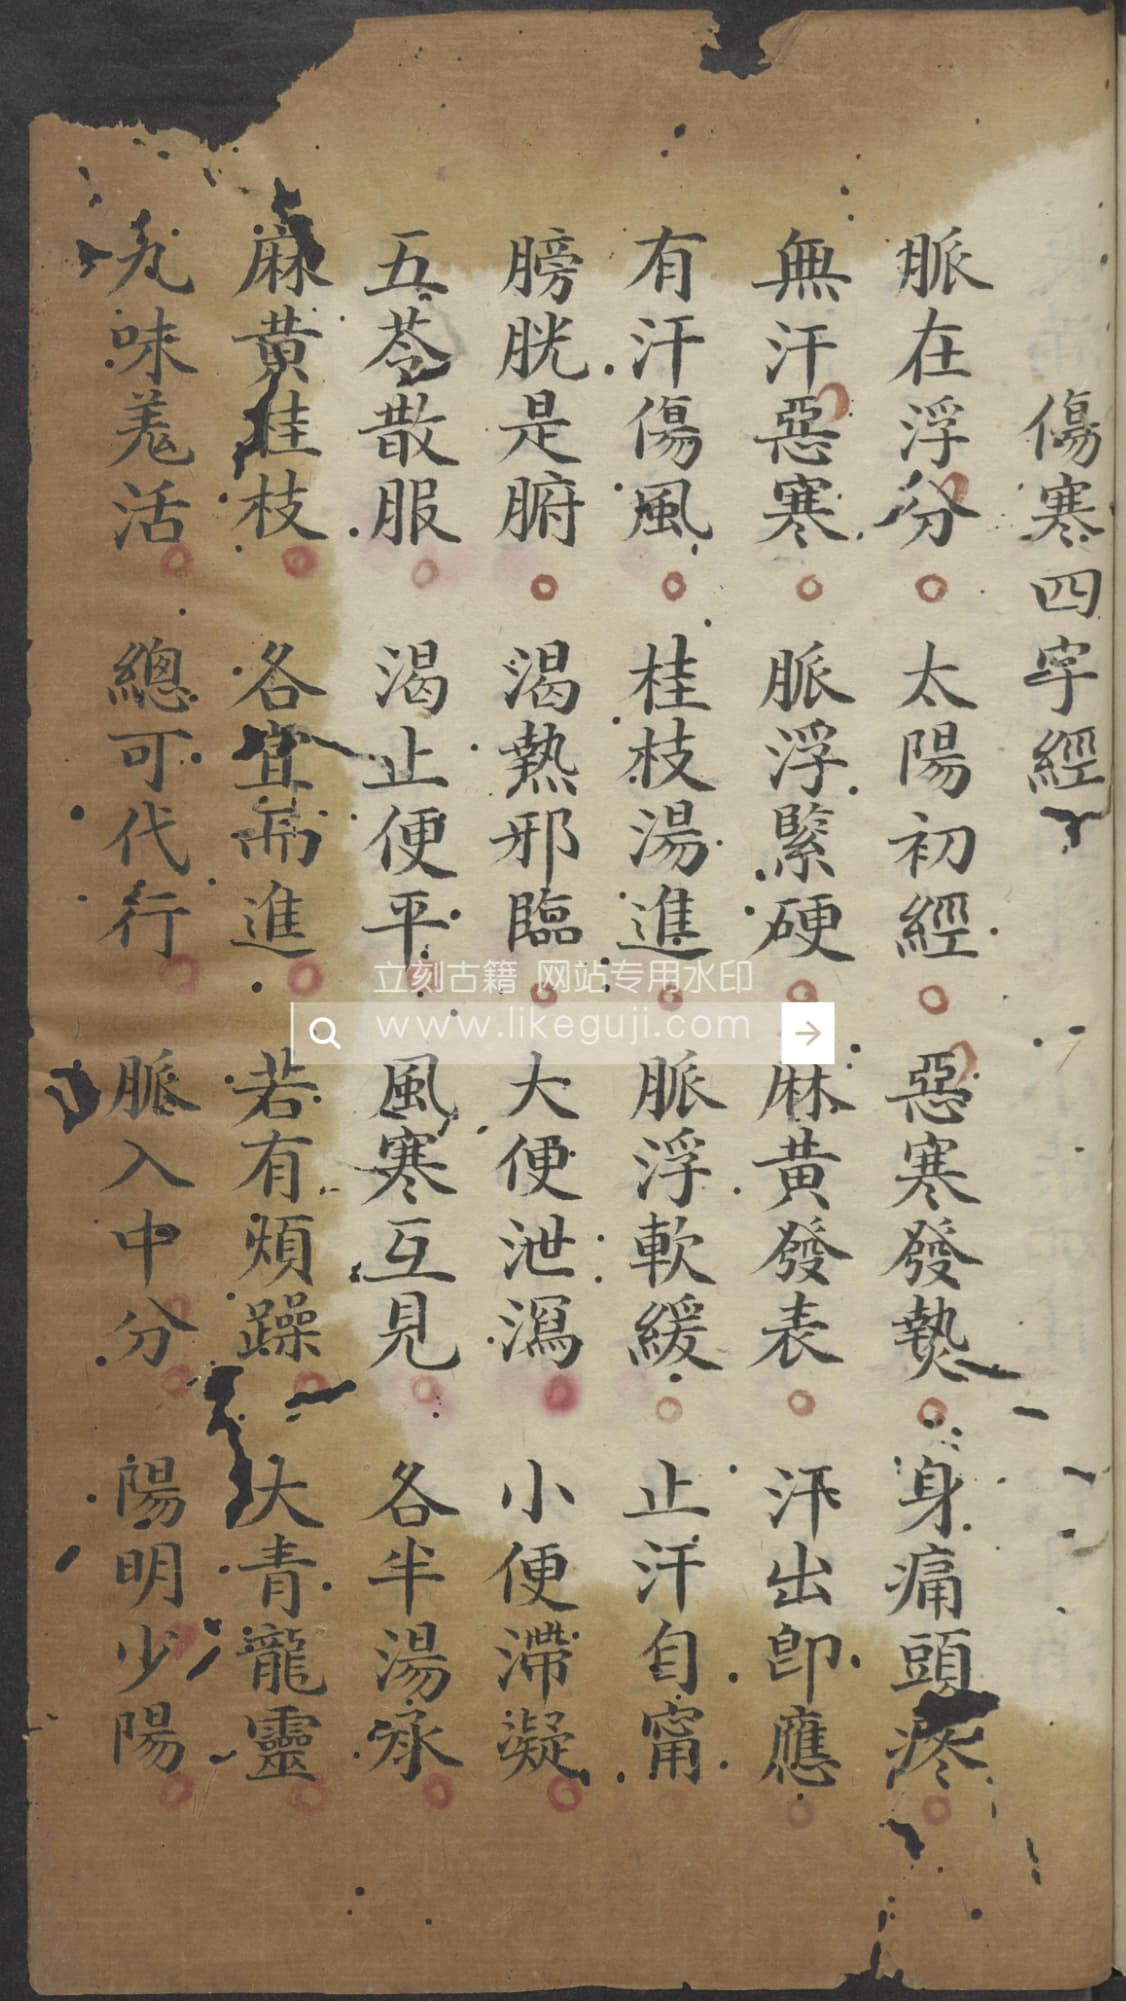 傷寒四字經
脈在浮分 太陽初經 惡寒發熱 身痛頭疼
無汗惡寒 脈浮緊硬 麻黃發表 汗出即應
有汗傷風 桂枝湯進 脈浮軟緩 止汗自甯
膀胱是腑 渴熱邪臨 大便泄瀉 小便滯凝
五苓散服 渴止便平 風寒互見 各半湯承
麻黃桂枝 各宜 進 若有煩躁 大青龍靈
九味羗活 總可代行 脈入中分 陽明少陽
立刻古籍 网站专用水印
www.likeguji.com